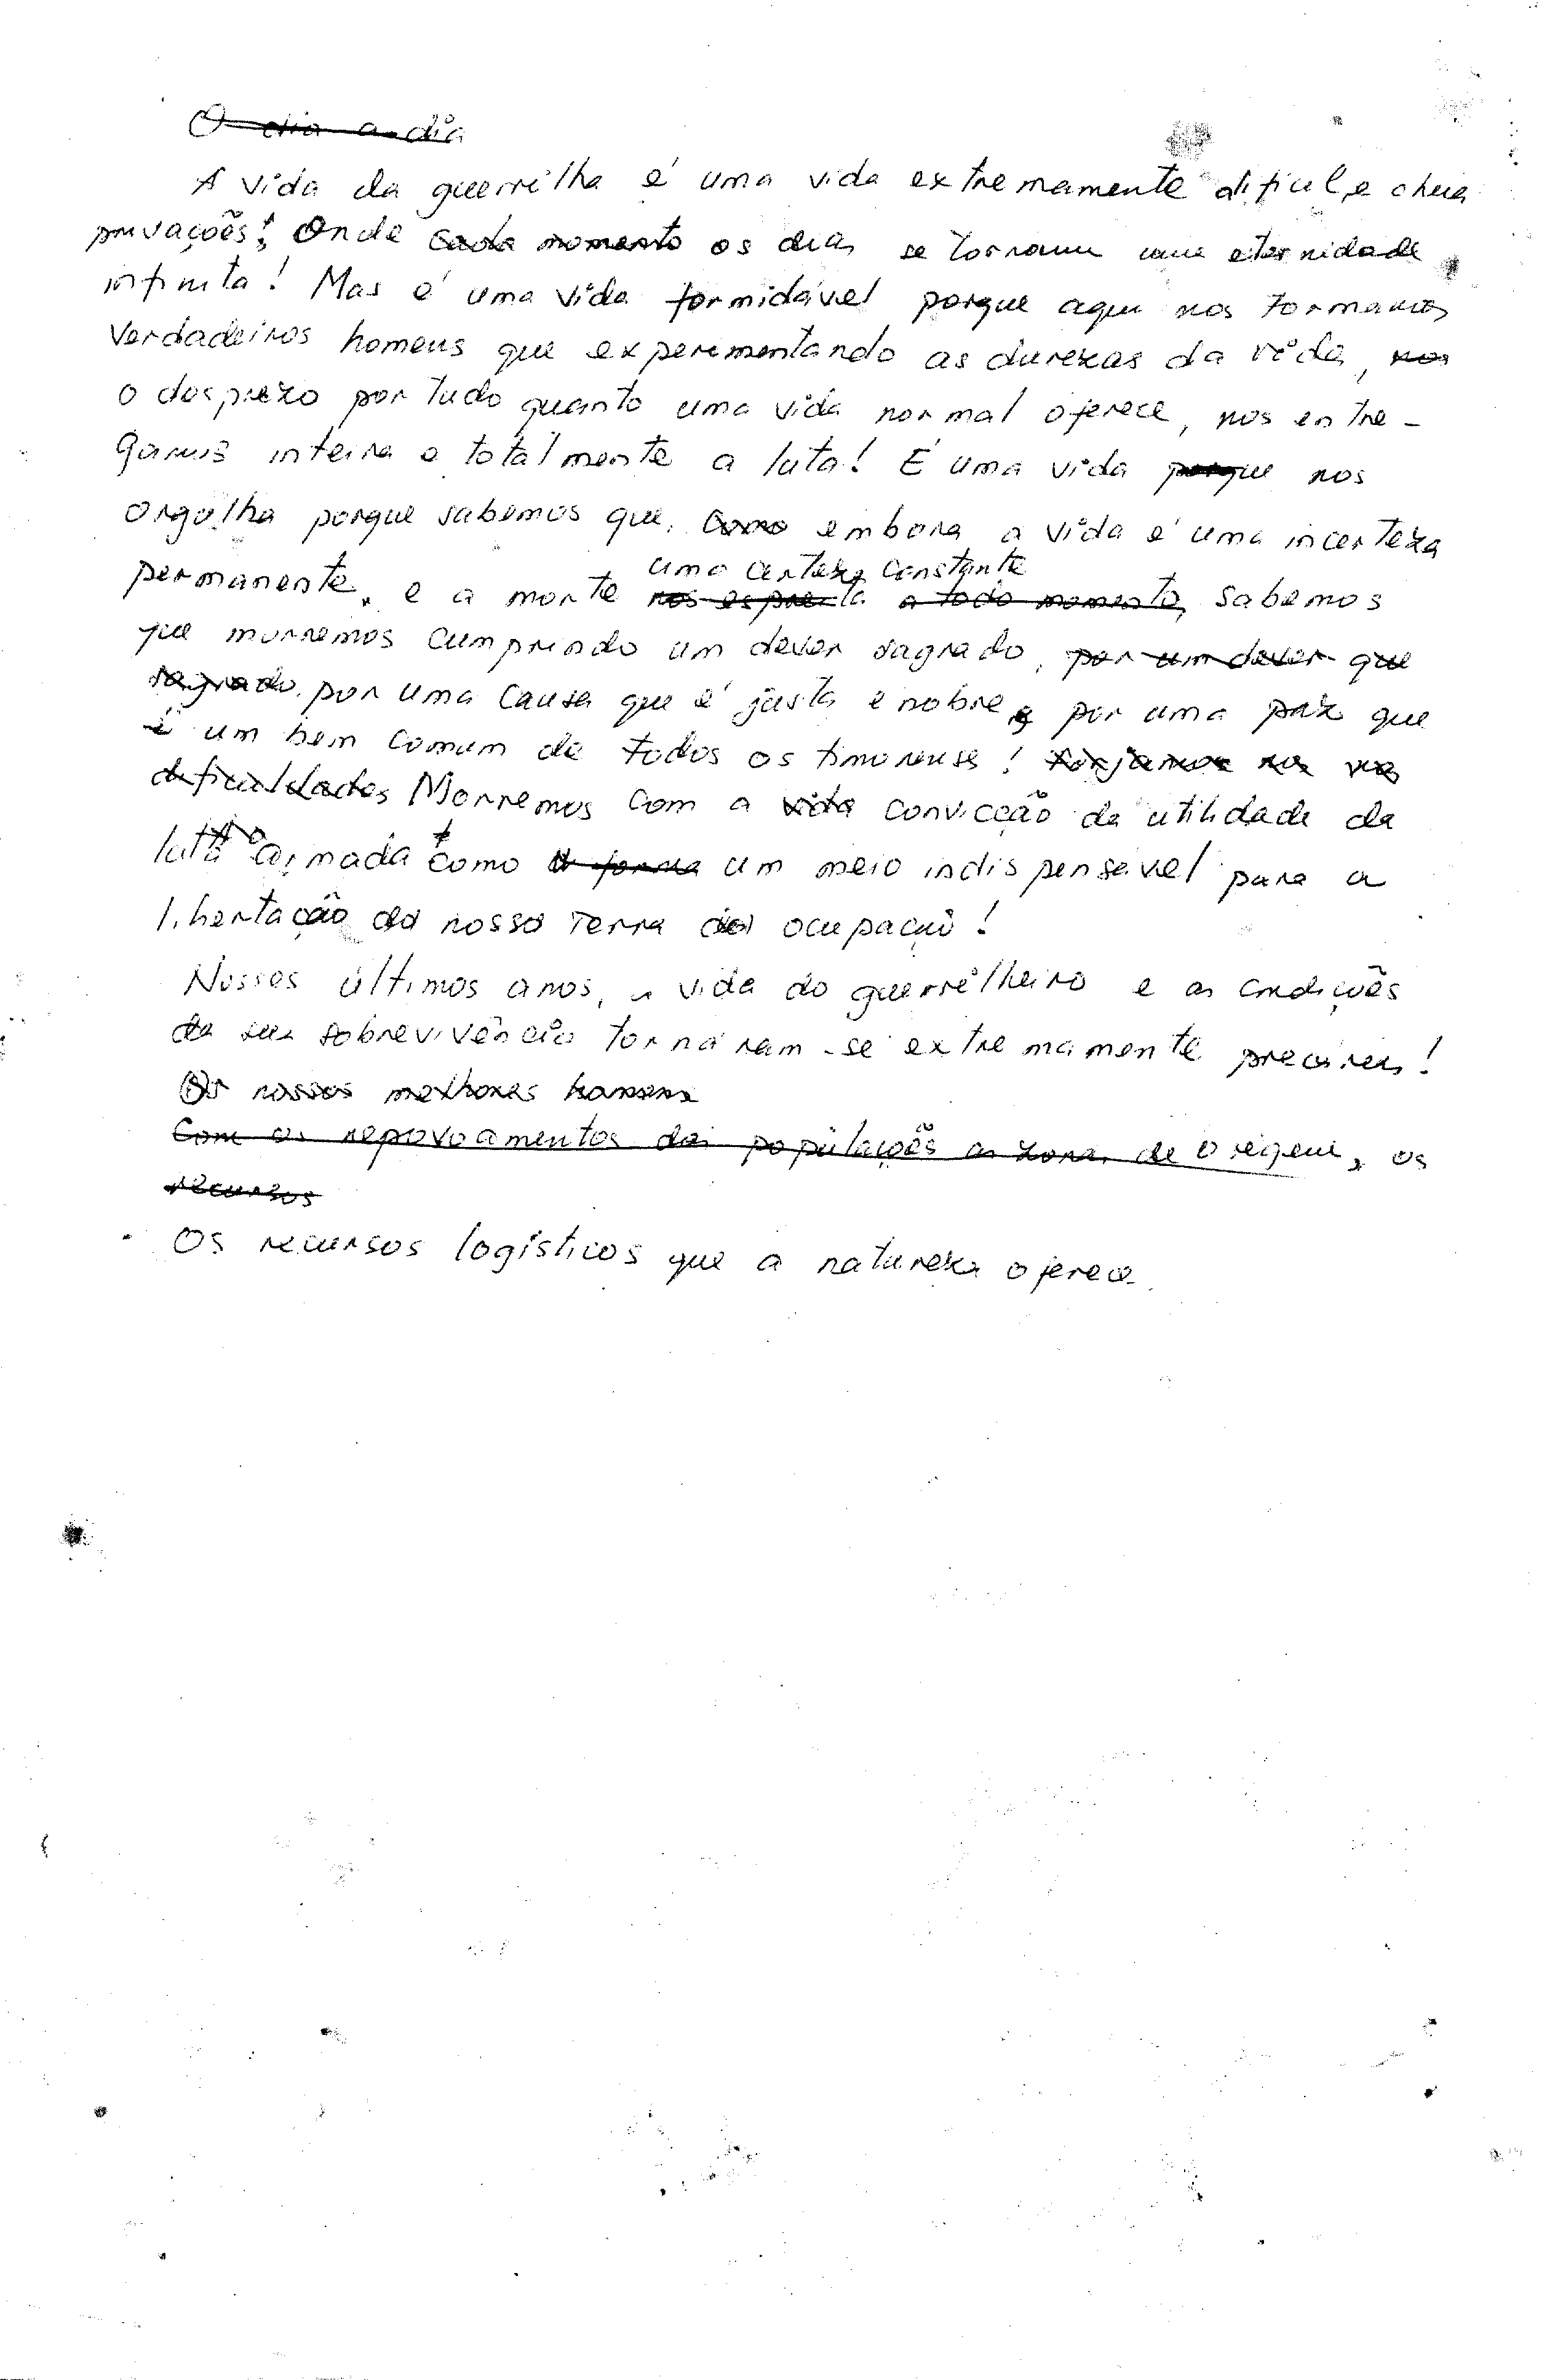 O dia a dia
A vida da guerrilha é uma vida extremamente dificil, e cheia
privações! Onde cada momento os dias se tornam uma eternidade
infinita! Mas é uma vida formidável porque aqui nos tornamos
verdadeiros homens que experimentando as durezas da vida, nos
o desprezo por tudo quanto uma vida normal oferece, nos entre-
gamos inteira e totalmente a luta! É uma vida porque nos
orgulha porque sabemos que, como embora a vida é uma incerteza
uma certeza constante
permanente, e a morte nos espreita a todo momento, sabemos
que morremos cumprindo um dever sagrado, por um dever que
sagrado, por uma causa que é justa e nobre e por uma paz que
é um bem comum de todos os timorenses! Forjamos na nas
dificuldades Morremos com a vida convicção da utilidade da
luta armada como a forma um meio indispensável para a
libertação da nossa terra da ocupação!
Nosses últimos anos, a vida do guerrilheiro e as condições
da sua sobrevivência tornaram-se extremamente precárias!
Os nossos melhores homens
Com os repovoamentos das populações as zonas de origem, os
recursos
Os recursos logísticos que a natureza oferece